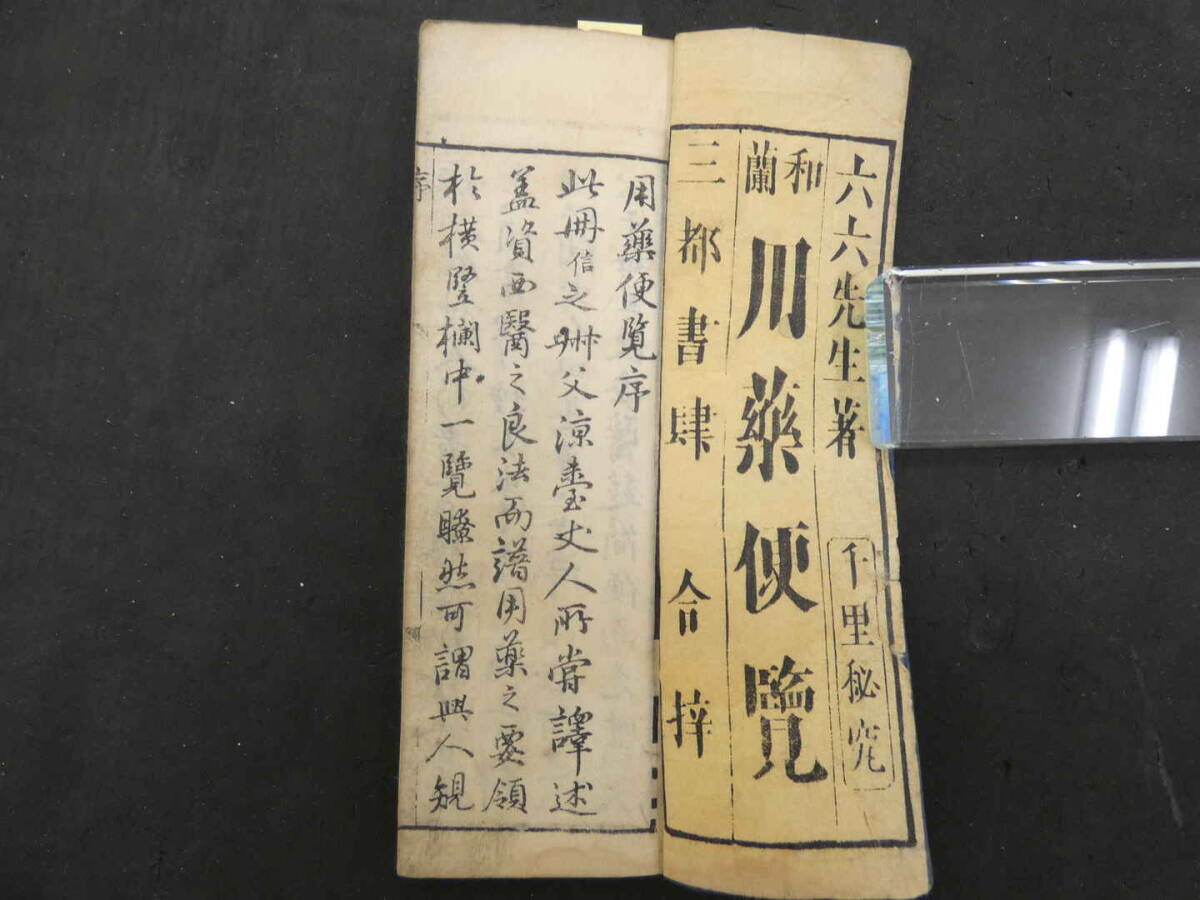 六六先生著 千里秘究
和蘭
用藥便覧
三都書肆 合梓
用藥便覧序
此冊信之舛父涼臺丈人所嘗譯述
蓋資西醫之良法而譜用藥之要領
於横竪欄中一覽瞭然可謂與人規
序